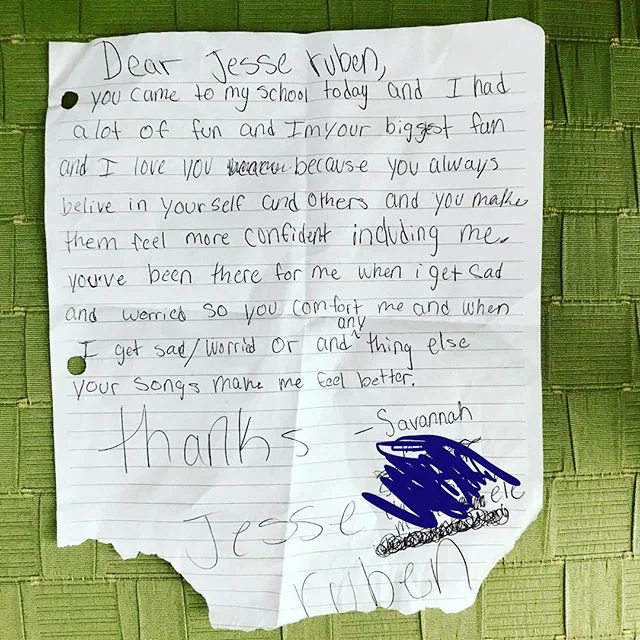 Dear Jesse ruben,
you came to my school today and I had
a lot of fun and Im your biggest fan
and I love you because you always
belive in yourself and others and you make
them feel more confident including me.
you've been there for me when i get sad
and worried so you comfort me and when
any
I get sad/worried or and^ thing else
your songs make me feel better.
- Savannah
thanks
Jesse
ruben